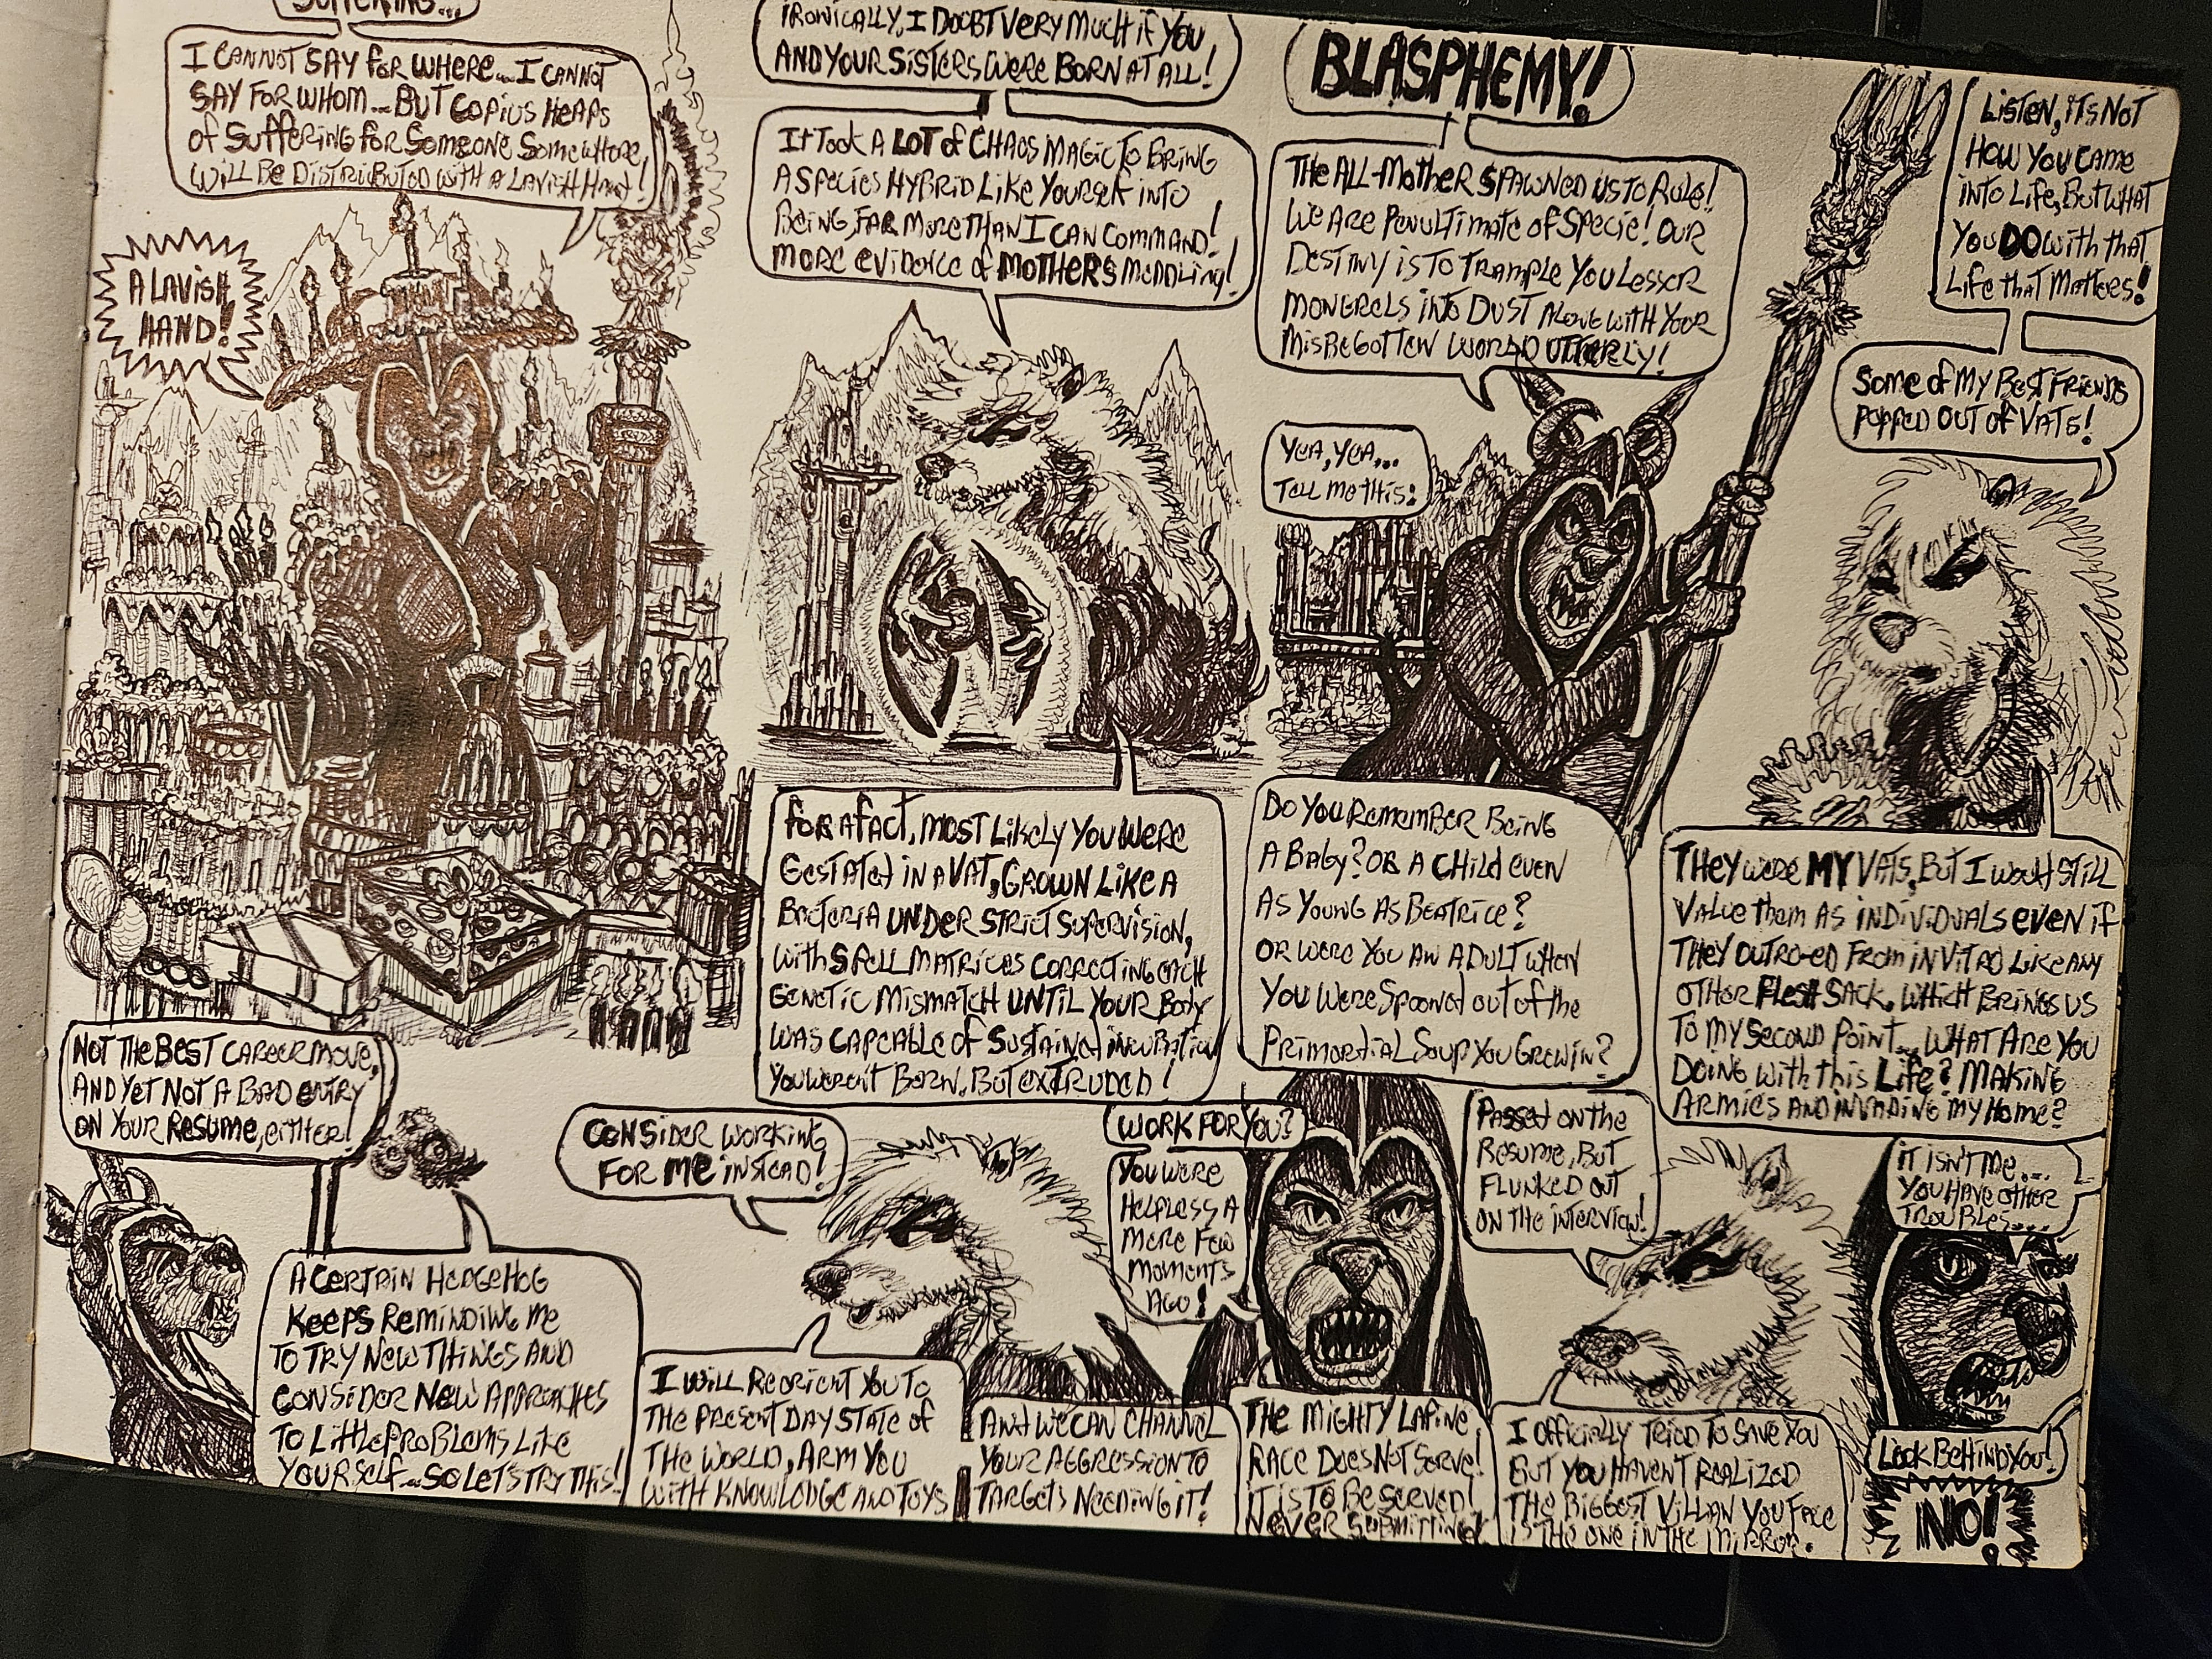 SUFFERING...
I CANNOT SAY FOR WHERE... I CANNOT
SAY FOR WHOM... BUT COPIUS HEAPS
OF SUFFERING FOR SOMEONE SOMEWHERE,
WILL BE DISTRIBUTED WITH A LAVISH HAND!
A LAVISH
HAND!
IRONICALLY, I DOUBT VERY MUCH IF YOU
AND YOUR SISTERS WERE BORN AT ALL!
IT TOOK A LOT OF CHAOS MAGIC TO BRING
A SPECIES HYBRID LIKE YOURSELF INTO
BEING, FAR MORE THAN I CAN COMMAND!
MORE EVIDENCE OF MOTHER'S MEDDLING!
FOR A FACT, MOST LIKELY YOU WERE
GESTATED IN A VAT, GROWN LIKE A
BACTERIA UNDER STRICT SUPERVISION,
WITH SPELL MATRICES CORRECTING EACH
GENETIC MISMATCH UNTIL YOUR BODY
WAS CAPABLE OF SUSTAINED INCUBATION
YOU WEREN'T BORN, BUT EXTRUDED!
BLASPHEMY!
THE ALL-MOTHER SPAWNED US TO RULE!
WE ARE PENULTIMATE OF SPECIE! OUR
DESTINY IS TO TRAMPLE YOU LESSER
MONGRELS INTO DUST ALONG WITH YOUR
MISBEGOTTEN WORLD UTTERLY!
YEA, YEA...
TELL ME THIS:
DO YOU REMEMBER BEING
A BABY? OR A CHILD EVEN
AS YOUNG AS BEATRICE?
OR WERE YOU AN ADULT WHEN
YOU WERE SPOONED OUT OF THE
PRIMORDIAL SOUP YOU GREW IN?
LISTEN, IT'S NOT
HOW YOU CAME
INTO LIFE, BUT WHAT
YOU DO WITH THAT
LIFE THAT MATTERS!
SOME OF MY BEST FRIENDS
POPPED OUT OF VATS!
THEY WERE MY VATS, BUT I WOULD STILL
VALUE THEM AS INDIVIDUALS EVEN IF
THEY OUTRO-ED FROM INVITRO LIKE ANY
OTHER FLESH SACK, WHICH BRINGS US
TO MY SECOND POINT... WHAT ARE YOU
DOING WITH THIS LIFE? MAKING
ARMIES AND INVADING MY HOME?
NOT THE BEST CAREER MOVE,
AND YET NOT A BAD ENTRY
ON YOUR RESUME, EITHER!
A CERTAIN HEDGEHOG
KEEPS REMINDING ME
TO TRY NEW THINGS AND
CONSIDER NEW APPROACHES
TO LITTLE PROBLEMS LIKE
YOURSELF... SO LET'S TRY THIS!
CONSIDER WORKING
FOR ME INSTEAD!
I WILL REORIENT YOU TO
THE PRESENT DAY STATE OF
THE WORLD, ARM YOU
WITH KNOWLEDGE AND TOYS
AND WE CAN CHANNEL
YOUR AGGRESSION TO
TARGETS NEEDING IT!
WORK FOR YOU?
YOU WERE
HELPLESS A
MERE FEW
MOMENTS
AGO!
THE MIGHTY LAPINE
RACE DOES NOT SERVE!
IT IS TO BE SERVED!
NEVER SUBMITTING!
PASSED ON THE
RESUME, BUT
FLUNKED OUT
ON THE INTERVIEW!
I OFFICIALLY TRIED TO SAVE YOU
BUT YOU HAVEN'T REALIZED
THE BIGGEST VILLIAN YOU FACE
IS THE ONE IN THE MIRROR.
IT ISN'T ME...
YOU HAVE OTHER
TROUBLES...
LOOK BEHIND YOU!
NO!